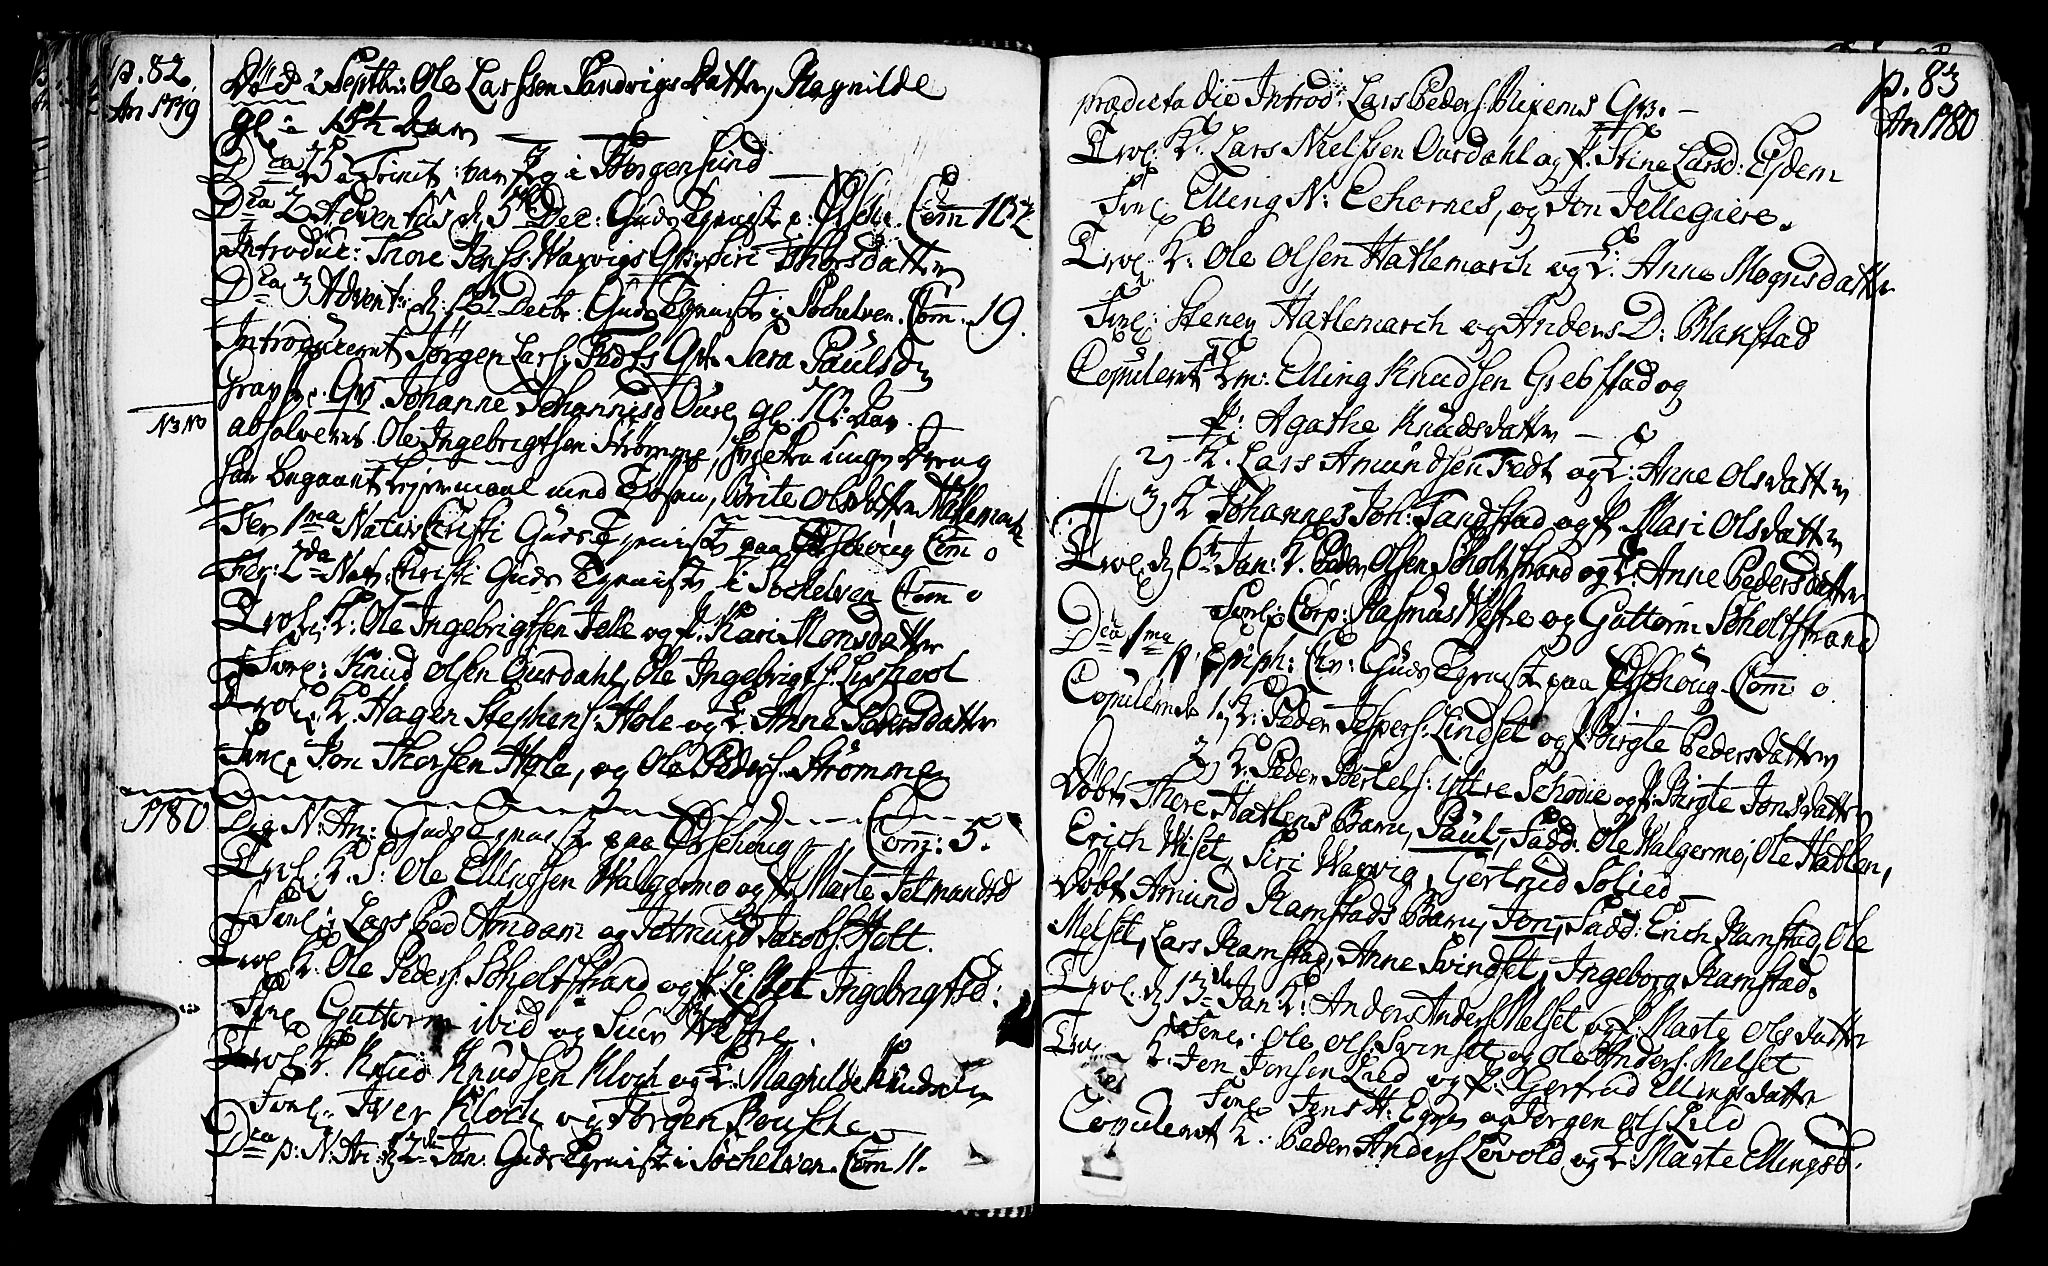 p. 82.
An 1779
Død i Septbr: Ole Larssen Sandvigs Datter, Ragnilde
gl: i 15th Dav
Dca 23 Trinit: var jeg i Jörgensund
Dca 2 Adventus d. 5te Dec: Guds Tjeniste i Com 102
Introduc: Thore Jenss: Warvigs Qv: Siri Thorsdatter
Dca 3 Advent: d: 12 Decbr: Guds Tjeniste i Sochelven. Com. 19.
Introduceret Jørgen Lars: Fadts Qv. Sara Paulsd
Gravf. Qv. Johanne Johannisd Oure, gl. 70: Aar.
N3 No
absolveret Ole Ingebrigtsen Strømme,
har begaaet Leiermaal med Brite Olsdatter Hatlemark
Fer 1ma Nativ Christi Guds Tjeniste paa Com 0
Fer: 2da Nat: Christi Guds Tjeniste i Sochelven Com 0
Trol: K. Ole Ingebrigtsen Jelle og P. Kari Monsdatter
Forl: Knud Olsen Ourdahl, Ole Ingebrigts.
Trol: K. Hagen Stephens: Hole og P. Anne Siversdatter
Forl Jon Thorsen Hole, og Ole Peders. Strømme
1780
Die N: An: Guds Tjeniste paa Com: 5.
Trol. K. S: Ole Ellingsen Walgermo og P. Marte Jetmundsd
Forl: Lars Ped Amdam og Jetmund Jacobs. Holt.
Trol K. Ole Peders. Söholtstrand og P. Lisbet Ingebrigtsd:
Forl Guttorm ibid og Siver Westre.
Trol K. Knud Knudsen Kloch og P. Magnilde Knudsdtr
Forl: Iver Kloch og Jörgen
Dca p: N: An: d 2de Jan: Guds Tjeniste i Sochelven. Com 11.
p. 83
An 1780
prædicta die Introd: Lars Peders. Qv. -
Trol: K. Lars Nielssen Ourdahl og P. Stine Larsd: Eidem
Forl Elling N: Echornes, og Jon Jellegiere.
Trol: K. Ole Olsen Hatlemarch og P. Anne Mognsdatter
Forl: Steney Hatlemarch og Anders D: Blakstad
Copuleret Km: Elling Knudsen Grebstad og
P: Agathe Knudsdatter
2) K. Lars Amundsen Tedt og P: Anne Olsdatter
3) K Johannes Joh: Sandstad og P Mari Olsdatter
Trol. d 6te Jan: K. Peder Olsen Söholtstrand og P. Anne Pedersdatter
Forl: Corp: Rasmus Westre og Guttorm Söholtstrand
Dca 1ma p. Epiph: Chr: Guds Tjeniste paa Com 0.
Copulerede 1) K. Peder Jespers: Lindset og P. Birgte Pedersdatter
2) K. Peder Bertels: Yttre Schodie og P. Birgte Jonsdatter
Døbt Thore Hatlens Barn, Paul, Fadd: Ole Walgermo, Ole Hatlen,
Erich Wiset, Siri Warvig, Gertrud Solied
Døbt Amund Ramstads Barn, Jon, Fadd: Erich Ramstad, Ole
Melset, Lars Ramstad, Anne Svindset, Ingeborg Ramstad.
Trol: d 13de Jan: K. Anders Anders Melset og P. Marte Olsdatter
Forl: Ole Ols: Svinset og Ole Anders: Melset
Trol K. Jon Jonsen Lied og P. Gertrud Ellingsdatter
Forl Jens H: Egges og Jörgen Ols Lied
Copuleret K: Peder Anders Lövold og P. Marte Ellingsd.